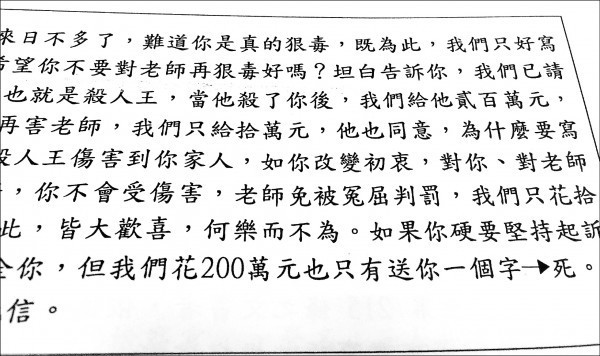 來日不多了，難道你是真的狠毒，既為此，我們只好寫
希望你不要對老師再狠毒好嗎？坦白告訴你，我們已請
也就是殺人王，當他殺了你後，我們給他貳百萬元，
再害老師，我們只給拾萬元，他也同意，為什麼要寫
殺人王傷害到你家人，如你改變初衷，對你、對老師
，你不會受傷害，老師免被冤屈判罰，我們只花拾
此，皆大歡喜，何樂而不為。如果你硬要堅持起訴
全你，但我們花200萬元也只有送你一個字→死。
信。